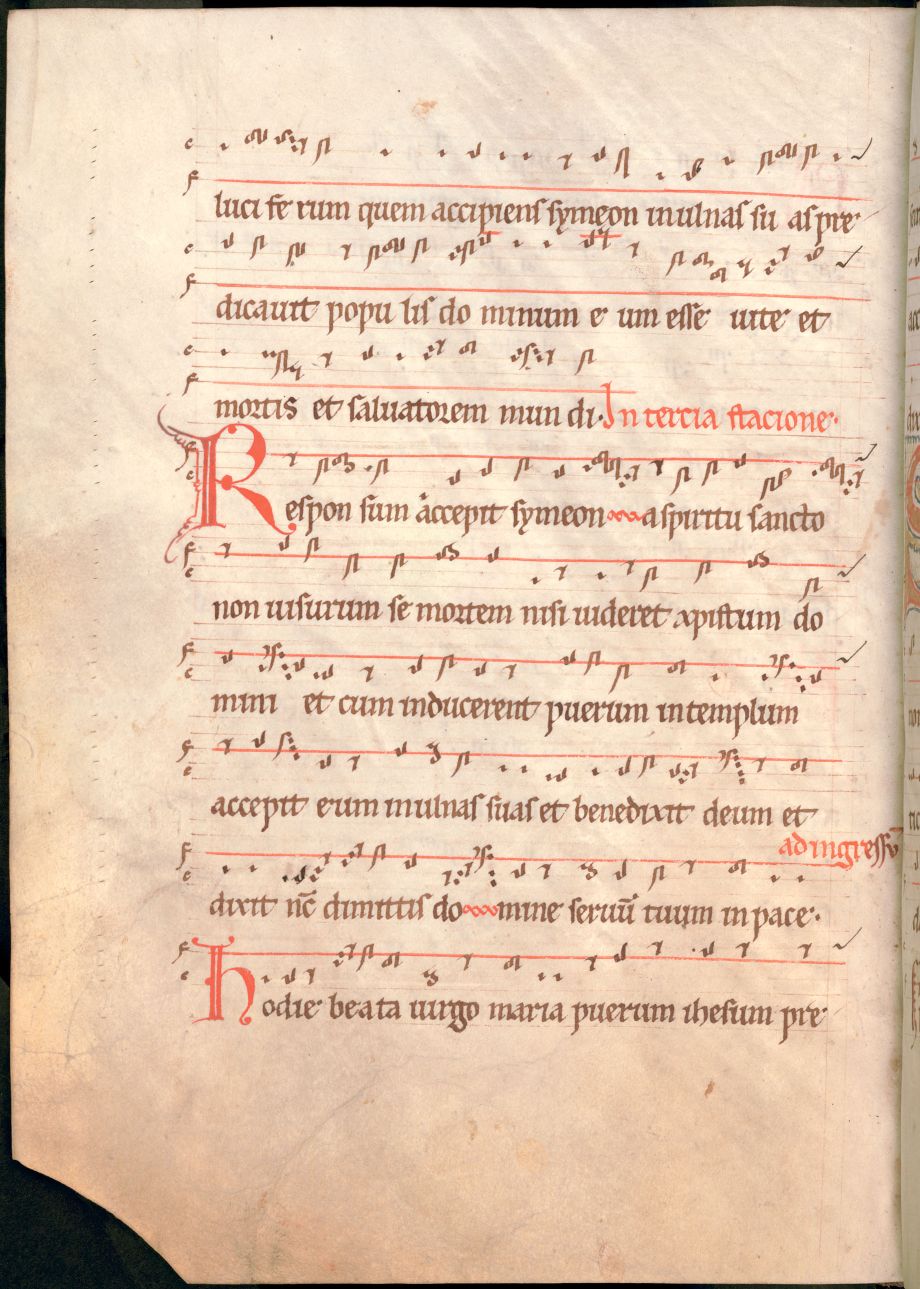 luciferum quem accipiens symeon in ulnas suas pre
dicauit populis dominum eum esse uite et
mortis et saluatorem mundi. In tercia stacione.
Responsum accepit symeon a spiritu sancto
non uisurum se mortem nisi uideret xpistum do
mini et cum inducerent puerum in templum
accepit eum in ulnas suas et benedixit deum et
ad ingressū
dixit nc̄ dimittis domine seruū tuum in pace.
hodie beata uirgo maria puerum ihesum pre